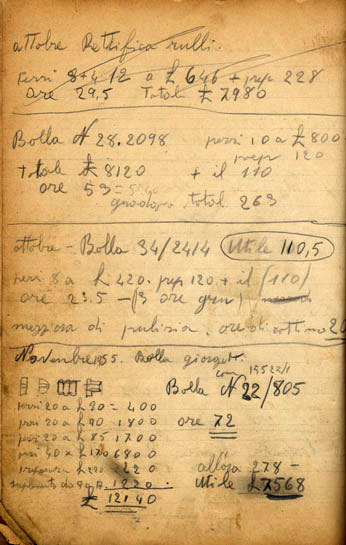 ottobre Rettifica rulli.
Pezzi 8+4 12 a £ 646 + prep 228
Ore 29,5 Totale £ 7980
Bolla N 28.2098 pezzi 10 a £ 800
prepr 120
totale £ 8120 + il 110
ore 53 = total 263
ottobre - Bolla 34/2414 Utile 110,5
pezzi 8 a £ 420. prep 120 + il (110)
ore 23.5 - (3 ore
mezz'ora di pulizia. ore di cottimo 20
Novembre 1955. Bolla
con 15522/1
Bolla N 22/805
pezzi 20 a £ 20 = 400
pezzi 20 a £ 90 1800
ore 72
pezzi 20 a £ 85 1700
pezzi 40 a £ 170 6800
preparazi £ 220 220
supplemento da 1220.
£ 12140
278 -
Utile £ 7568